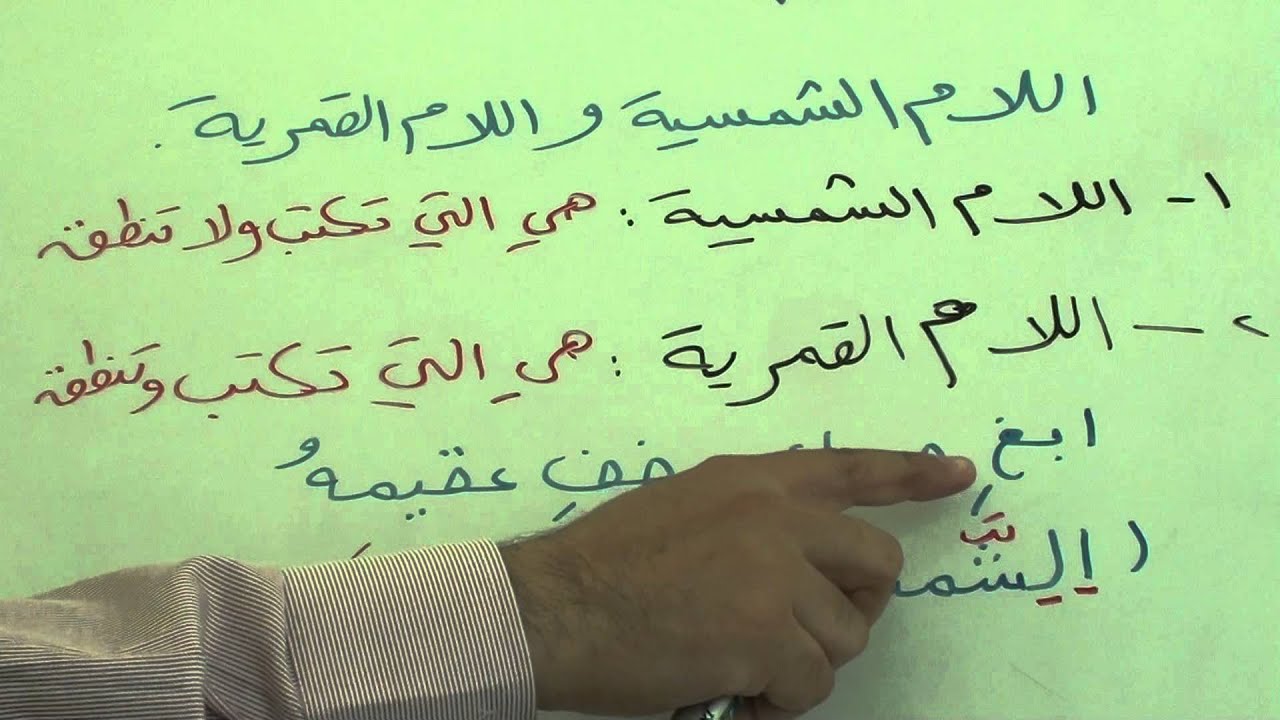 اللام الشمسية و اللام القمرية .
١- اللام الشمسية : هي التي تكتب ولا تنطق
٢- اللام القمرية : هي التي تكتب وتنطق
ابغِ وخفِ عقيمهُ
( الشمس